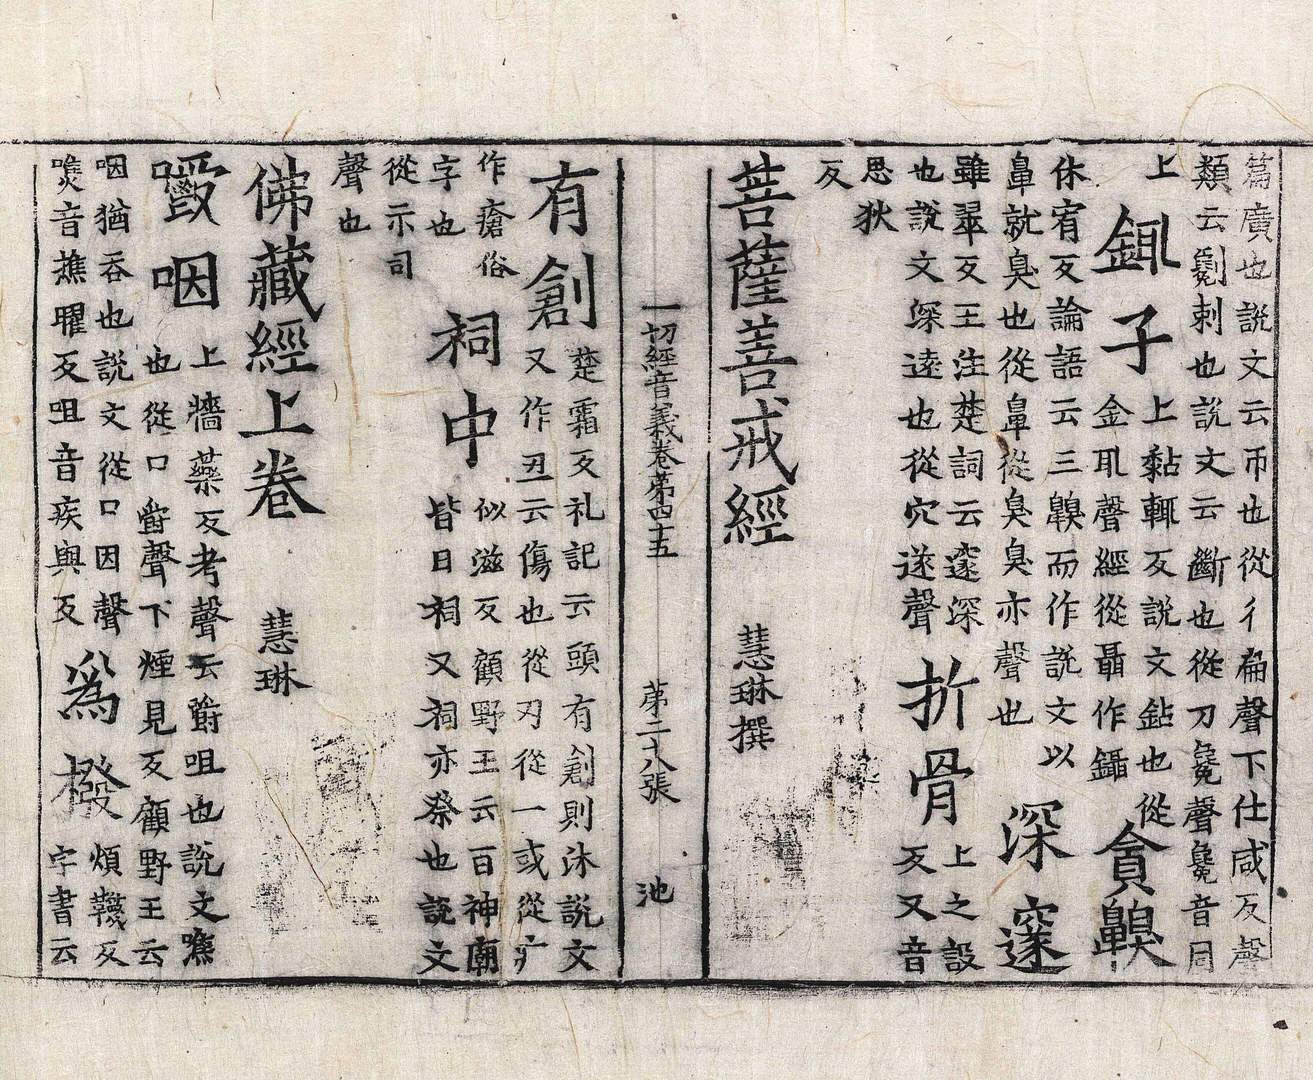 篇廣也說文云帀也從彳扁聲下仕咸反聲
類云劖刺也說文云斷也從刀毚聲毚音同
上
鉔子
上黏輒反說文鉆也從
金耴聲經從聶作鑷
貪齅
休宥反論語云三齅而作說文以
鼻就臭也從鼻從臭臭亦聲也
深邃
雖翠反王注楚詞云邃深
也說文深遠也從穴遂聲
折骨
上之設
反又音
思狄
反
菩薩善戒經 慧琳撰
一切經音義卷第四十五 第二十八張 池
有創
楚霜反礼記云頭有創則沐說文
又作丑云傷也從刃從一或從疒
作瘡俗
字也
祠中
似滋反顧野王云百神廟
皆曰祠又祠亦祭也說文
從示司
聲也
佛藏經上卷 慧琳
嚼咽
上牆藥反考聲云嚼咀也說文噍
也從口爵聲下煙見反顧野王云
咽猶吞也說文從口因聲
噍音樵曜反咀音疾與反
爲橃
煩韈反
字書云